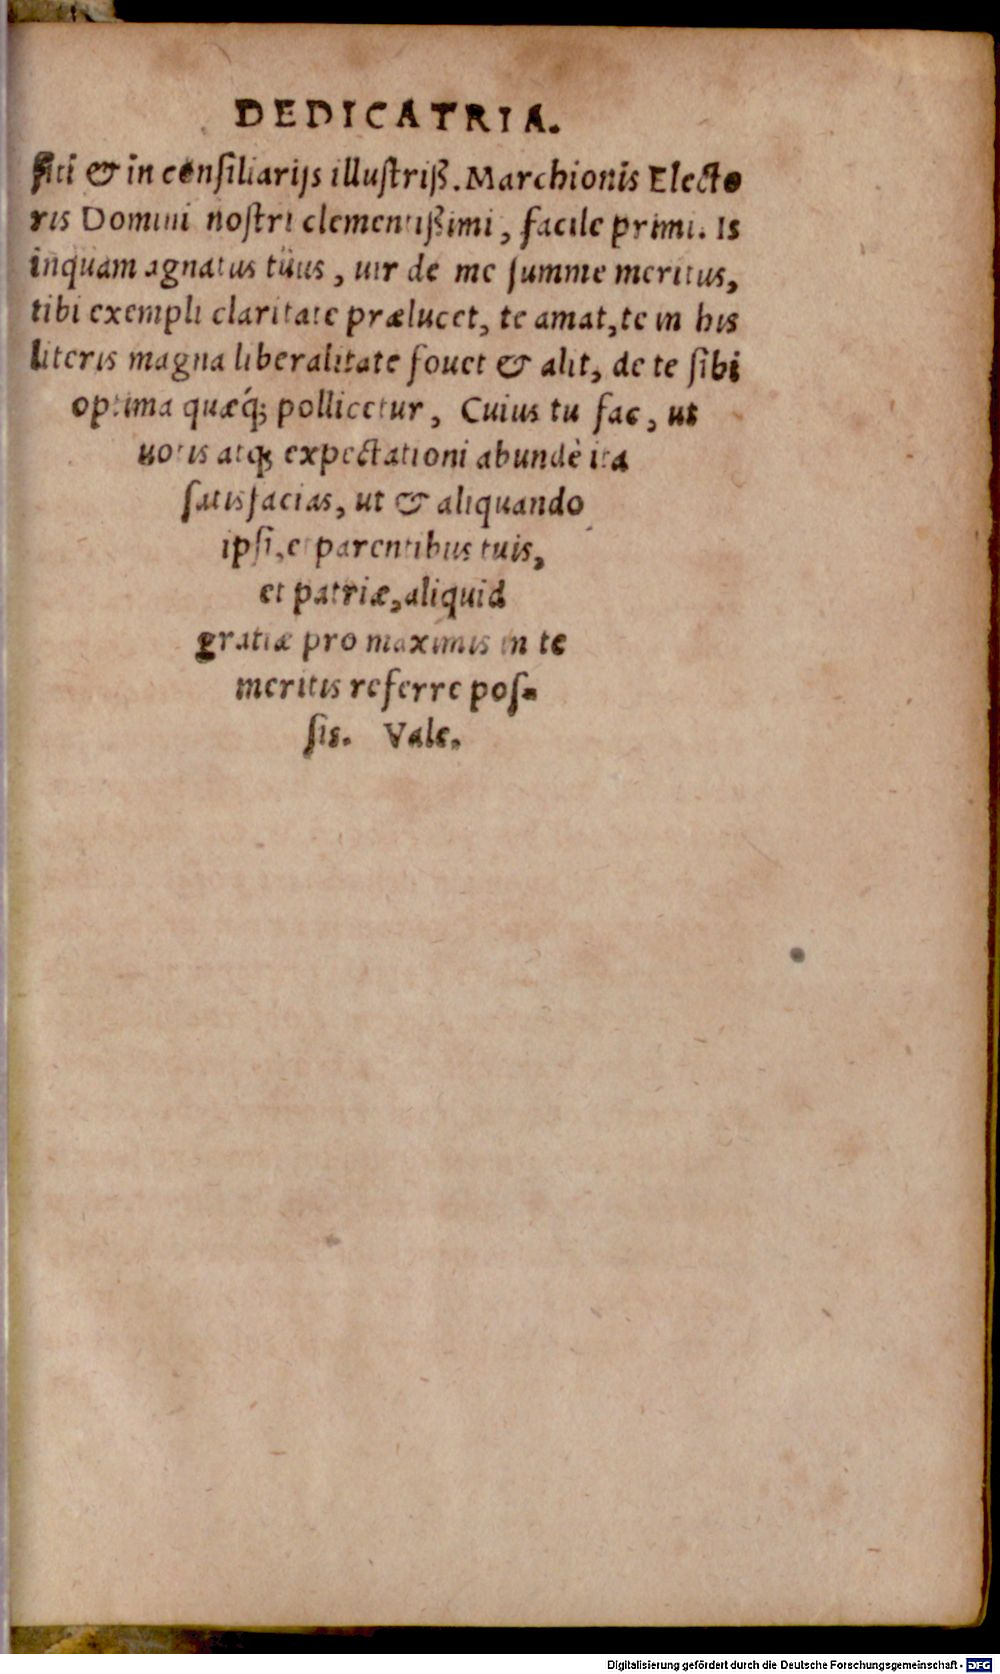 DEDICATRIA.
siti & in consiliarijs illustriß. Marchionis Electo
ris Domini nostri clementißimi, facile primi. Is
inquam agnatus tuus, uir de me summe meritus,
tibi exempli claritate prælucet, te amat, te in his
literis magna liberalitate fouet & alit, de te sibi
optima quæq́; pollicetur, Cuius tu fac, ut
uotis atq; expectationi abundè ita
satisfacias, ut & aliquando
ipsi, et parentibus tuis,
et patriæ, aliquid
gratiæ pro maximis in te
meritis referre pos-
sis. Vale.
Digitalisierung gefördert durch die Deutsche Forschungsgemeinschaft - DFG